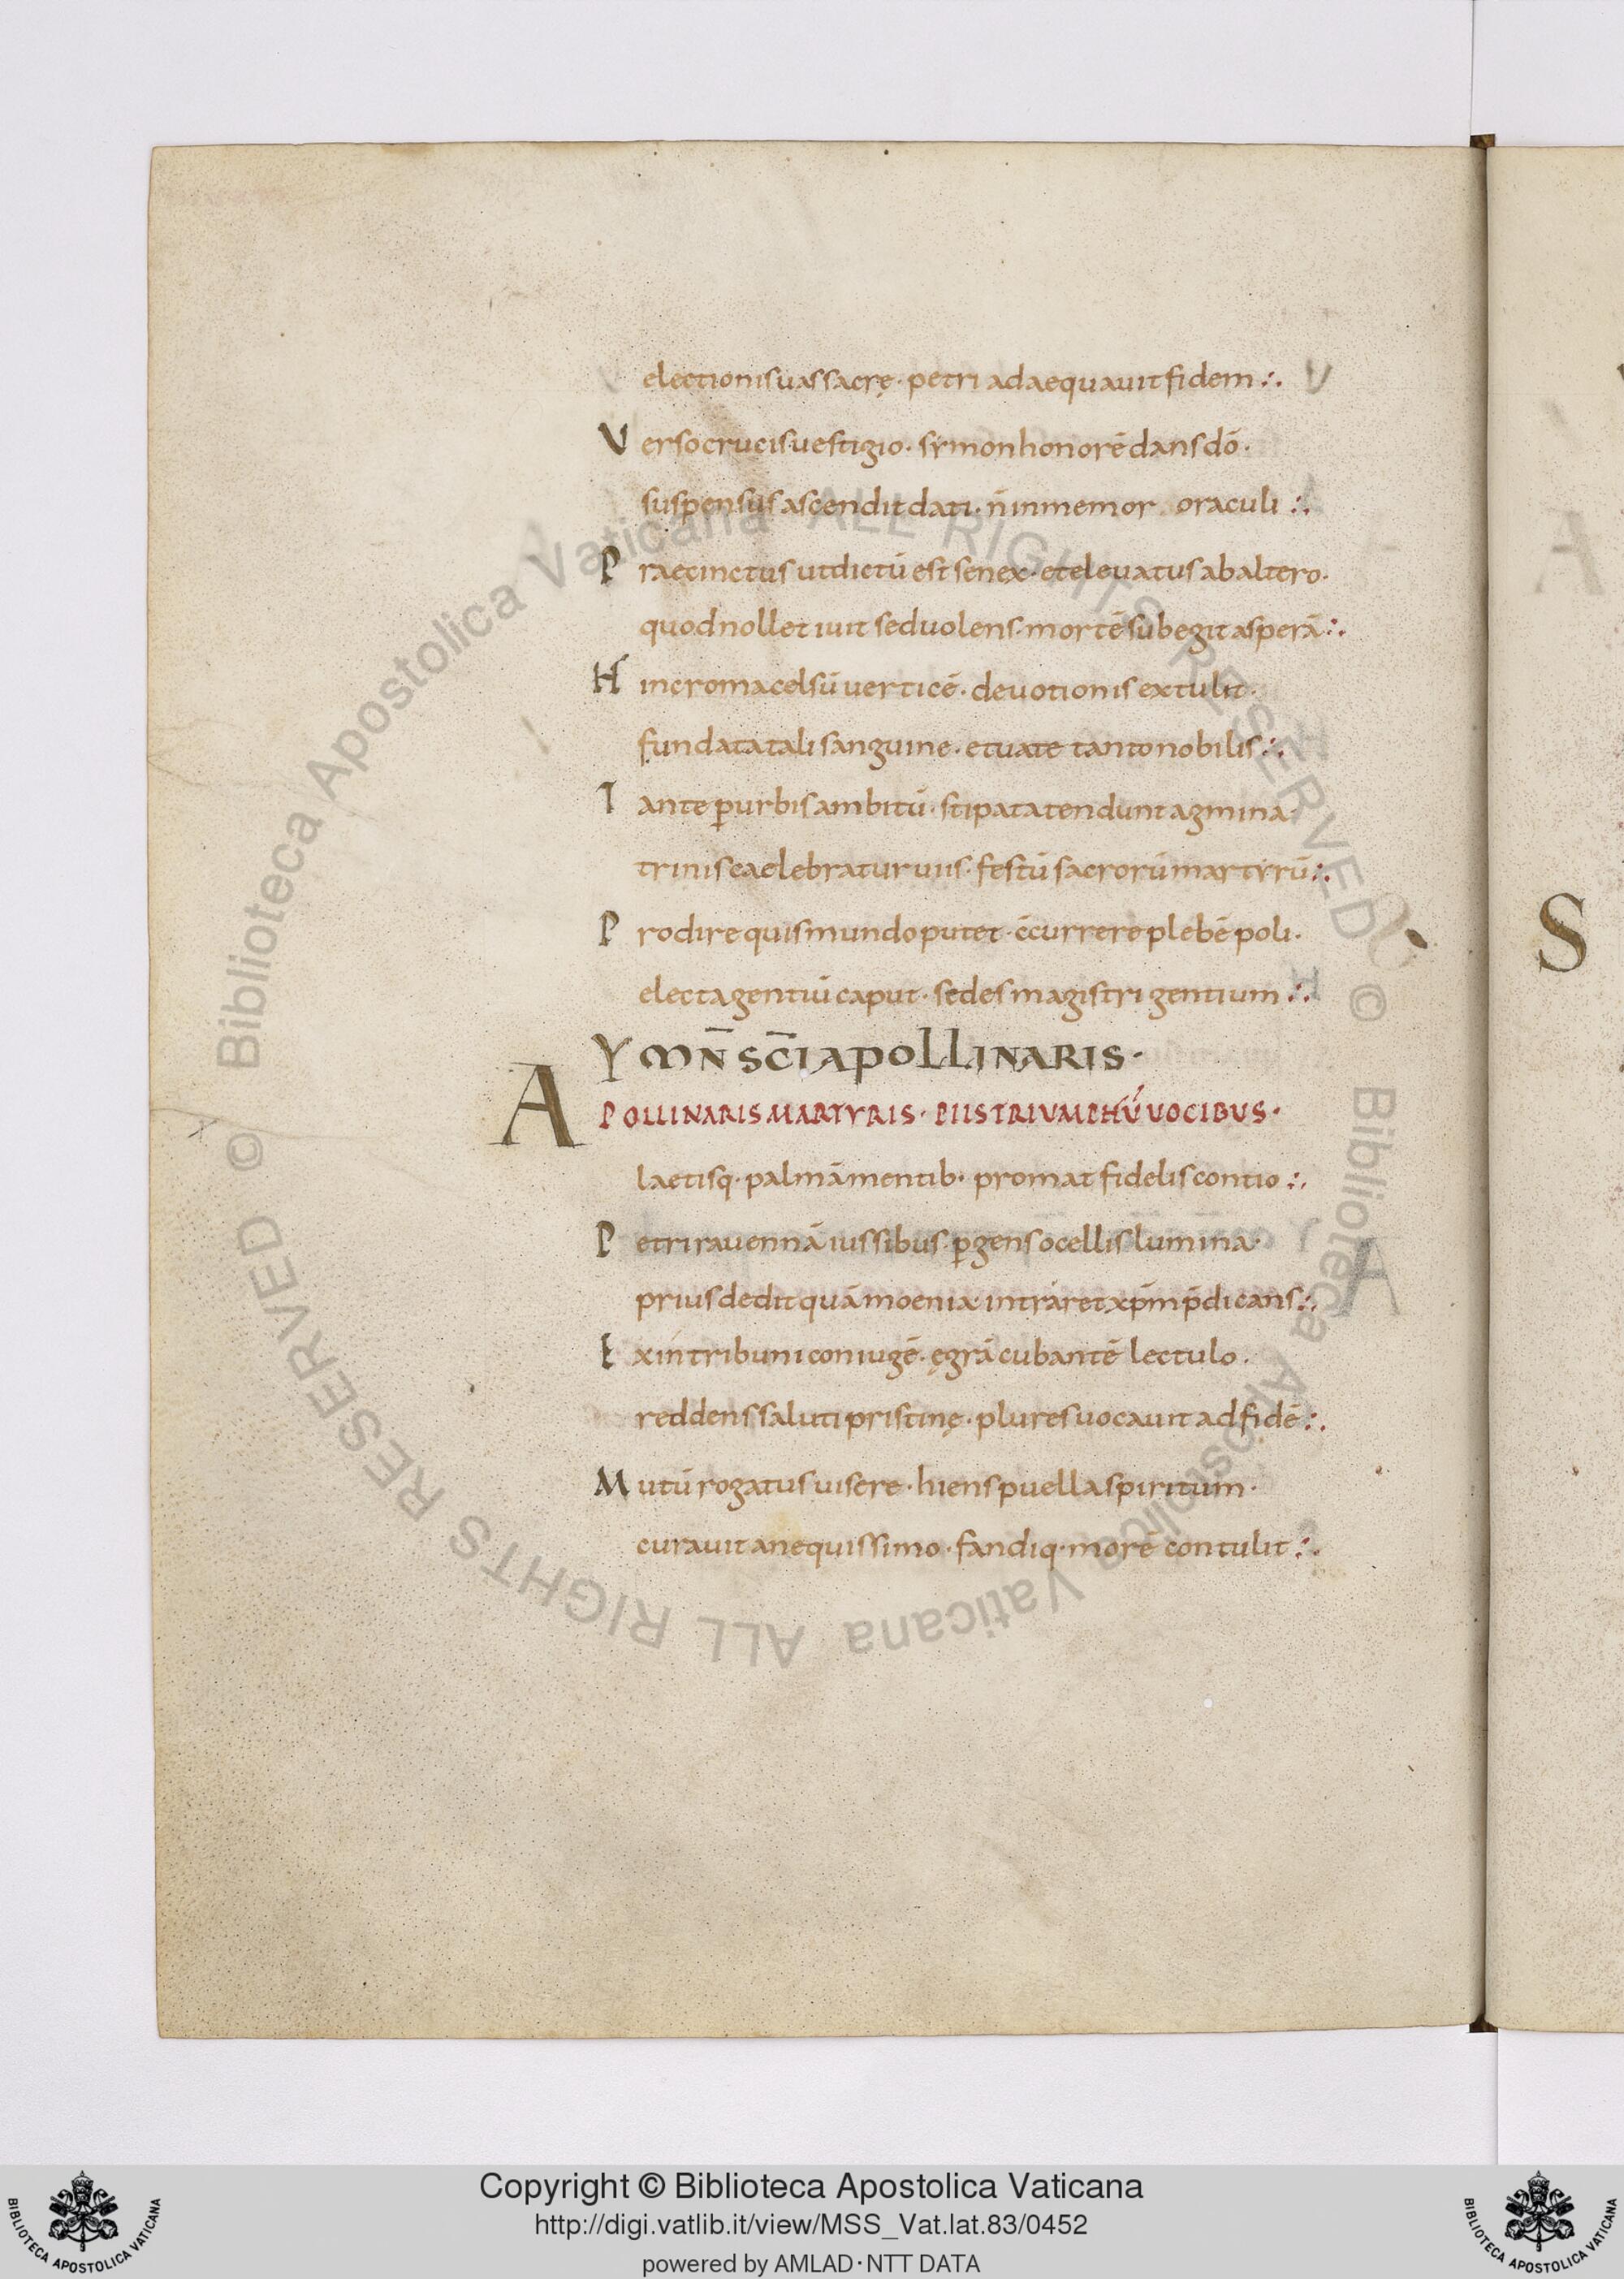 electionis uas sacrę · petri adaequauit fidem :.
Verso crucis uestigio · symon honorē dans dō ·
suspensus ascendit dati · n̄ inmemor oraculi :.
Praecinctus ut dictū est senex · et eleuatus ab altero ·
quod nollet iuit sed uolens · mortē subegit asperā :.
Hinc roma celsū uerticē · deuotionis extulit ·
fundata tali sanguine · et uate tanto nobilis :.
Tante p̄ urbis ambitū · stipata tendunt agmina ·
trinis caelebratur uiis · festū sacrorū martyrū :.
Prodire quis mundo putet · c̄currere plebē poli ·
electa gentiū caput · sedes magistri gentium :.
YMN̄ SC̄I APOLLINARIS ·
APOLLINARIS MARTYRIS · PII S TRIVMPHŪ VOCIBVS ·
laetisq · palmā mentib · promat fidelis contio :.
Petri rauennā iussibus · p̄gens ocellis lumina ·
prius dedit quā moenia · intraret xp̄m p̄dicans :.
Exin tribuni coniugē · ęgrā cubantē lectulo ·
reddens saluti pristinę · plures uocauit ad fidē :.
Mutū rogatus uisere · hiens puella spiritum ·
curauit a nequissimo · fandiq · morē contulit :.
Copyright © Biblioteca Apostolica Vaticana
http://digi.vatlib.it/view/MSS_Vat.lat.83/0452
powered by AMLAD · NTT DATA
© Biblioteca Apostolica Vaticana ALL RIGHTS RESERVED
© Biblioteca Apostolica Vaticana ALL RIGHTS RESERVED
BIBLIOTECA APOSTOLICA VATICANA
BIBLIOTECA APOSTOLICA VATICANA
S